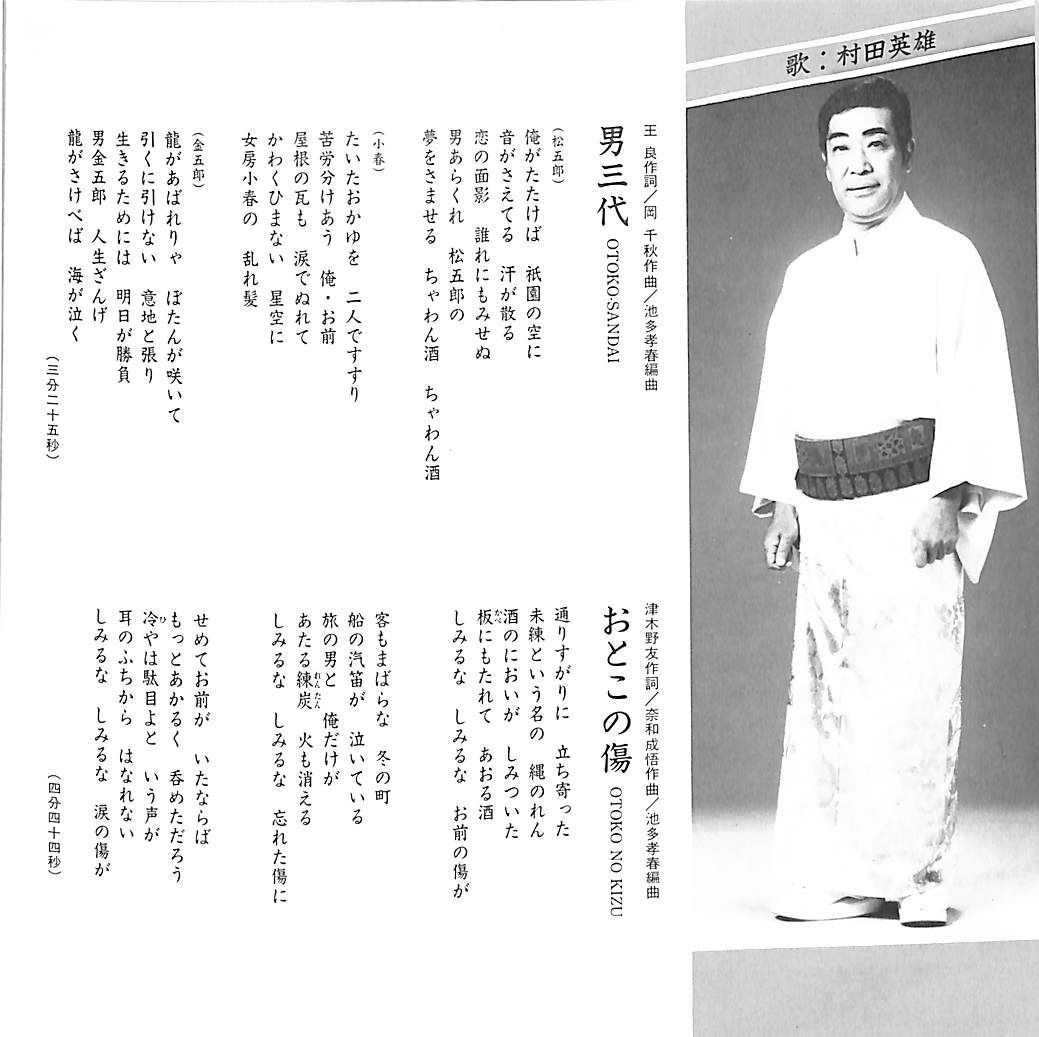 歌：村田英雄
王 良作詞／岡 千秋作曲／池多孝春編曲
男三代 OTOKO-SANDAI
（松五郎）
俺がたたけば 祇園の空に
音がさえてる 汗が散る
恋の面影 誰れにもみせぬ
男あらくれ 松五郎の
夢をさませる ちゃわん酒 ちゃわん酒
（小春）
たいたおかゆを 二人ですすり
苦労分けあう 俺・お前
屋根の瓦も 涙でぬれて
かわくひまない 星空に
女房小春の 乱れ髪
（金五郎）
龍があばれりゃ ぼたんが咲いて
引くに引けない 意地と張り
生きるためには 明日が勝負
男金五郎 人生ざんげ
龍がさけべば 海が泣く
（三分二十五秒）
津木野友作詞／奈和成悟作曲／池多孝春編曲
おとこの傷 OTOKO NO KIZU
通りすがりに 立ち寄った
未練という名の 縄のれん
酒のにおいが しみついた
板にもたれて あおる酒
かべ
しみるな しみるな お前の傷が
客もまばらな 冬の町
船の汽笛が 泣いている
旅の男と 俺だけが
あたる練炭 火も消える
れんたん
しみるな しみるな 忘れた傷に
せめてお前が いたならば
もっとあかるく 呑めただろう
冷やは駄目よと いう声が
ひ
耳のふちから はなれない
しみるな しみるな 涙の傷が
（四分四十四秒）